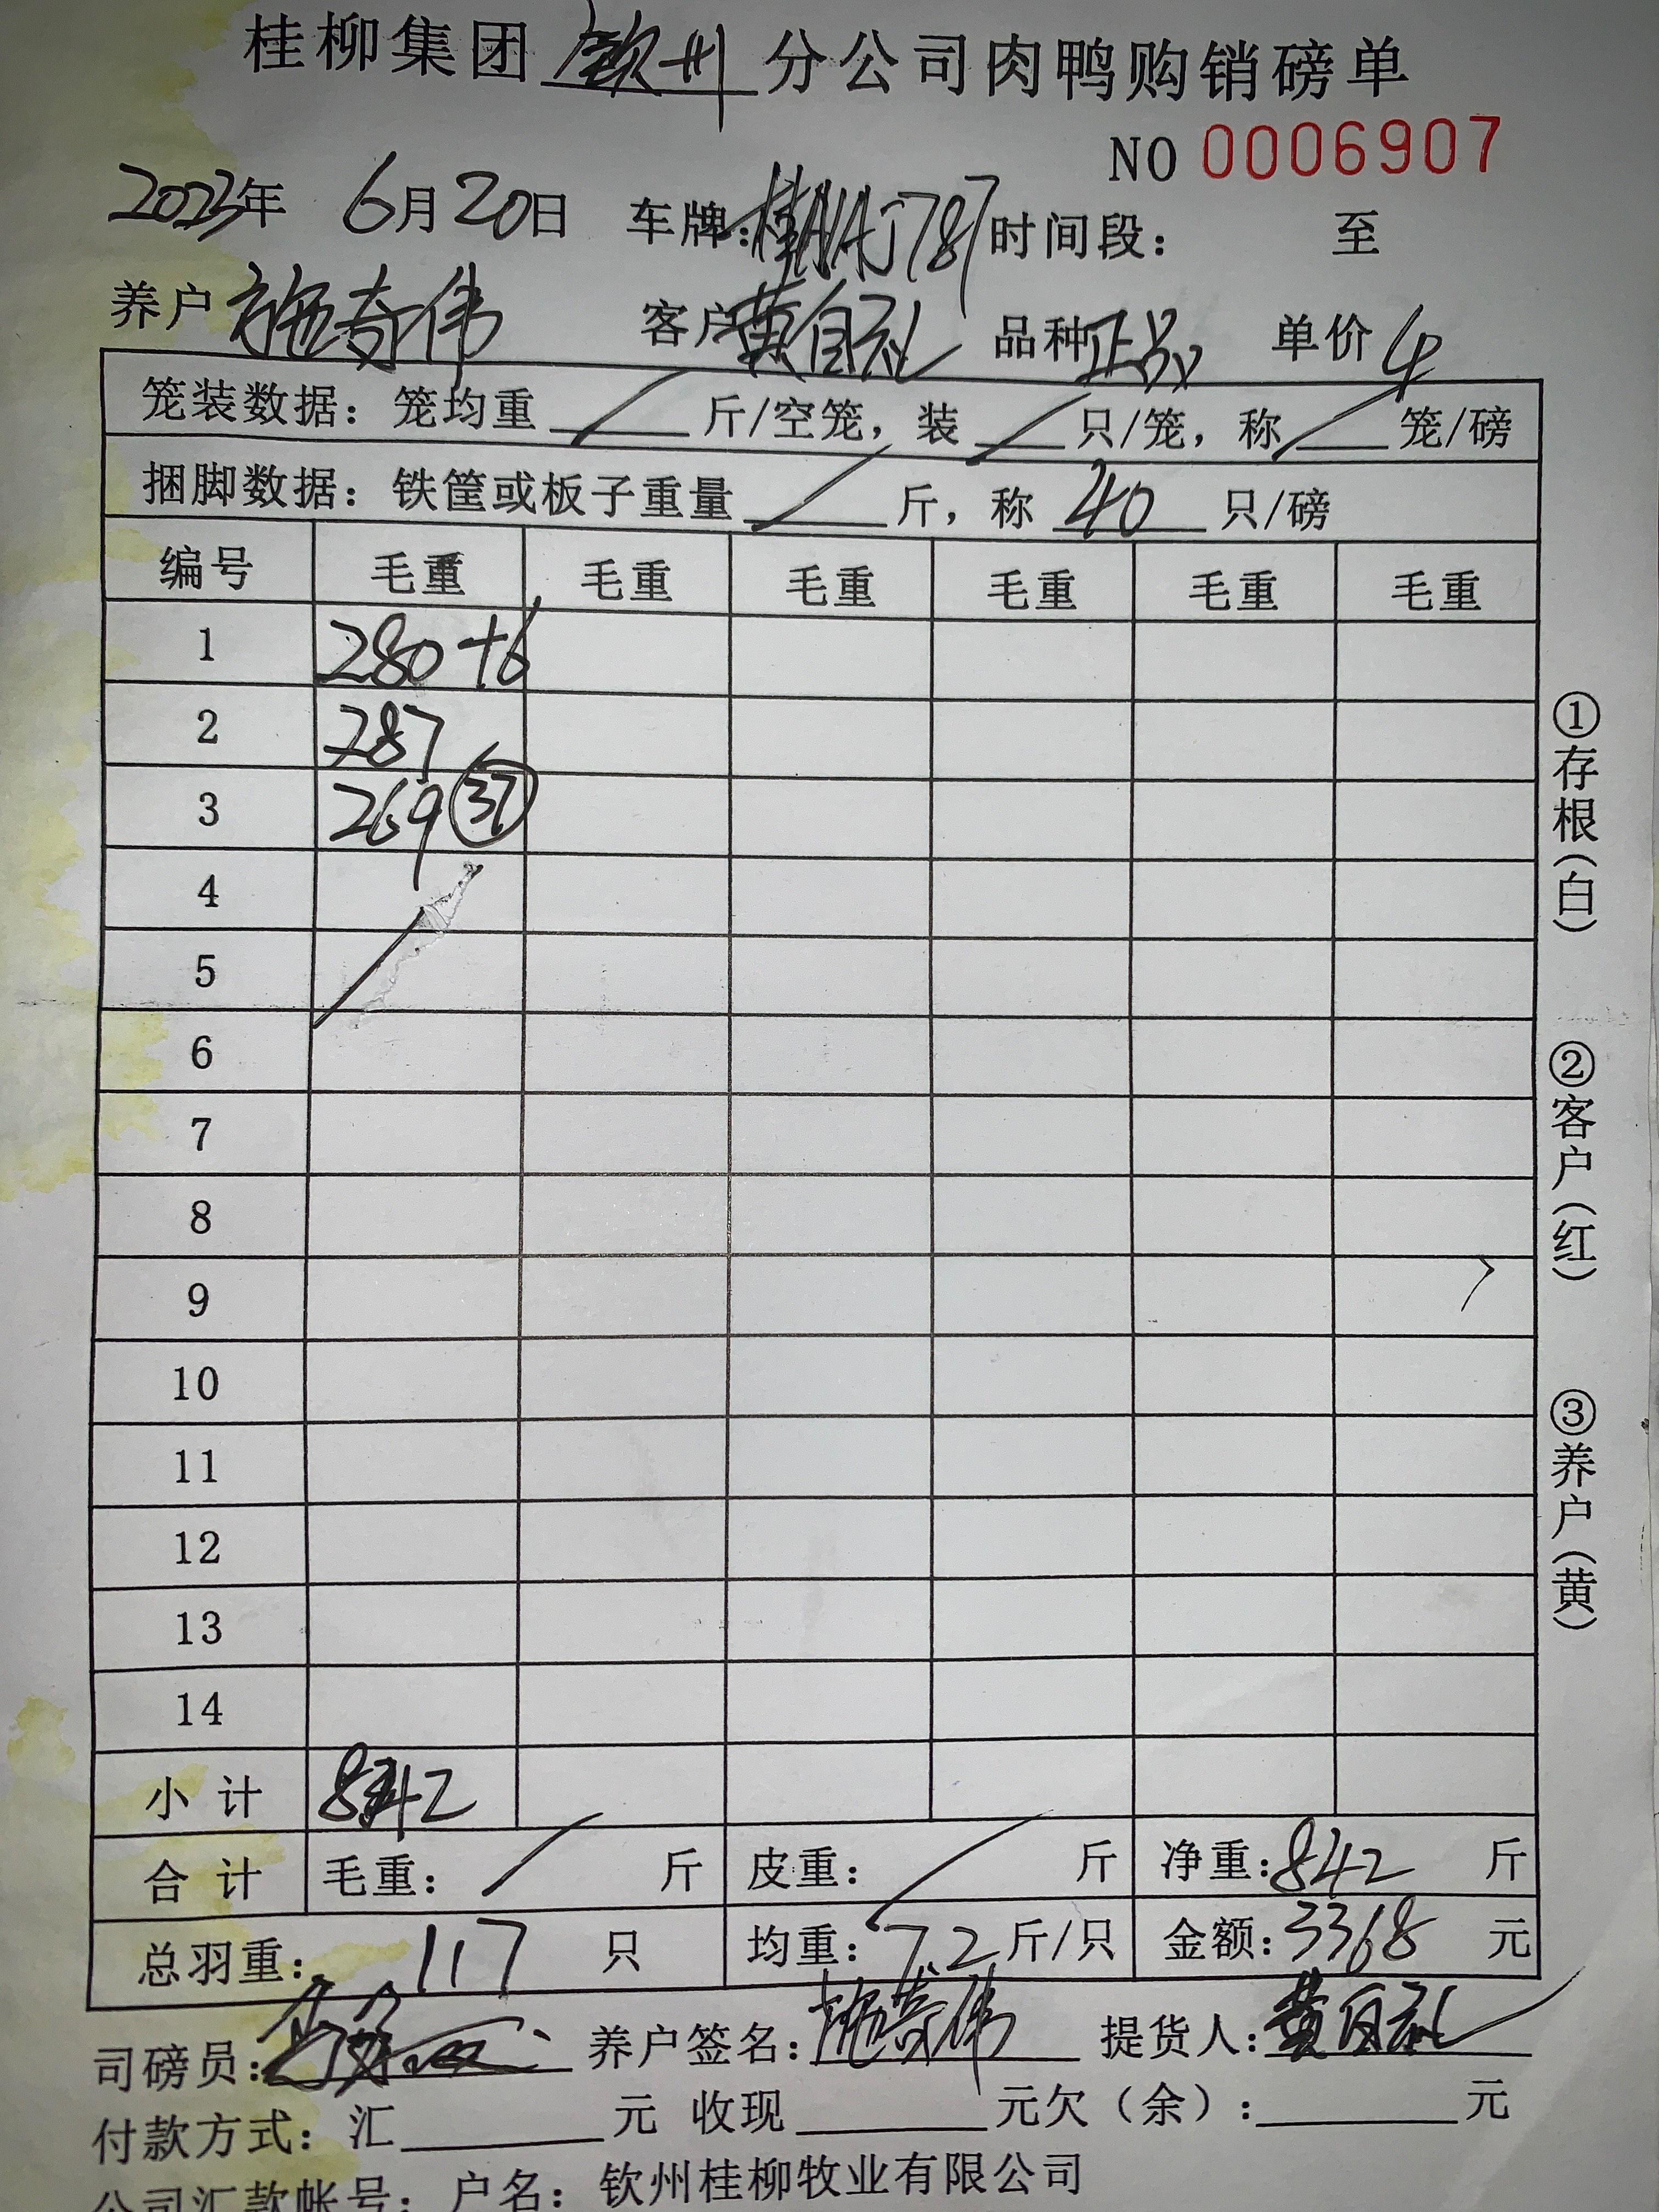 桂柳集团 钦州 分公司肉鸭购销磅单
NO 0006907
2023年 6月20日 车牌:桂NAJ787 时间段: 至
养户 施奇伟 客户 黄自礼 品种 正品 单价 4
笼装数据:笼均重 斤/空笼,装 只/笼,称 笼/磅
捆脚数据:铁筐或板子重量 斤,称 40 只/磅
编号 毛重 毛重 毛重 毛重 毛重 毛重
1 280+6
2 287
3 269 37
4
5
6
7
8
9
10
11
12
13
14
小计 842
合计 毛重: 斤 皮重: 斤 净重:842 斤
总羽重: 117 只 均重:7.2 斤/只 金额:3368 元
司磅员: 养户签名:施奇伟 提货人:黄自礼
付款方式:汇 元 收现 元欠(余): 元
公司汇款帐号:户名:钦州桂柳牧业有限公司
①存根(白)
②客户(红)
③养户(黄)